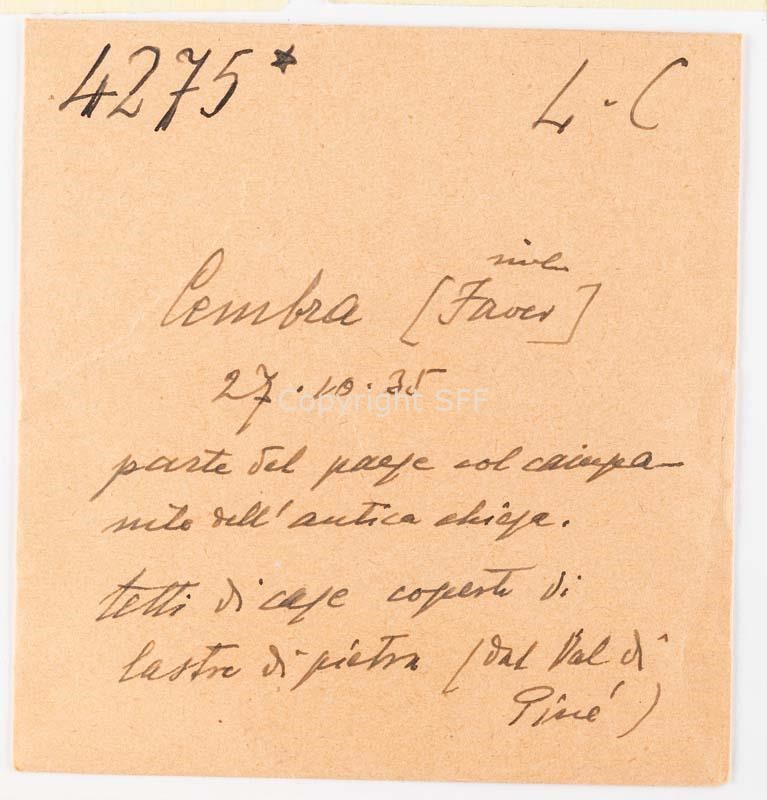 4275* L.C
Cembra [Faver]
27.10.35
Copyright SFF
parte del paese col campa-
nile dell'antica chiesa.
tetti di case coperte di
lastre di pietra (dal Val di
Piné)